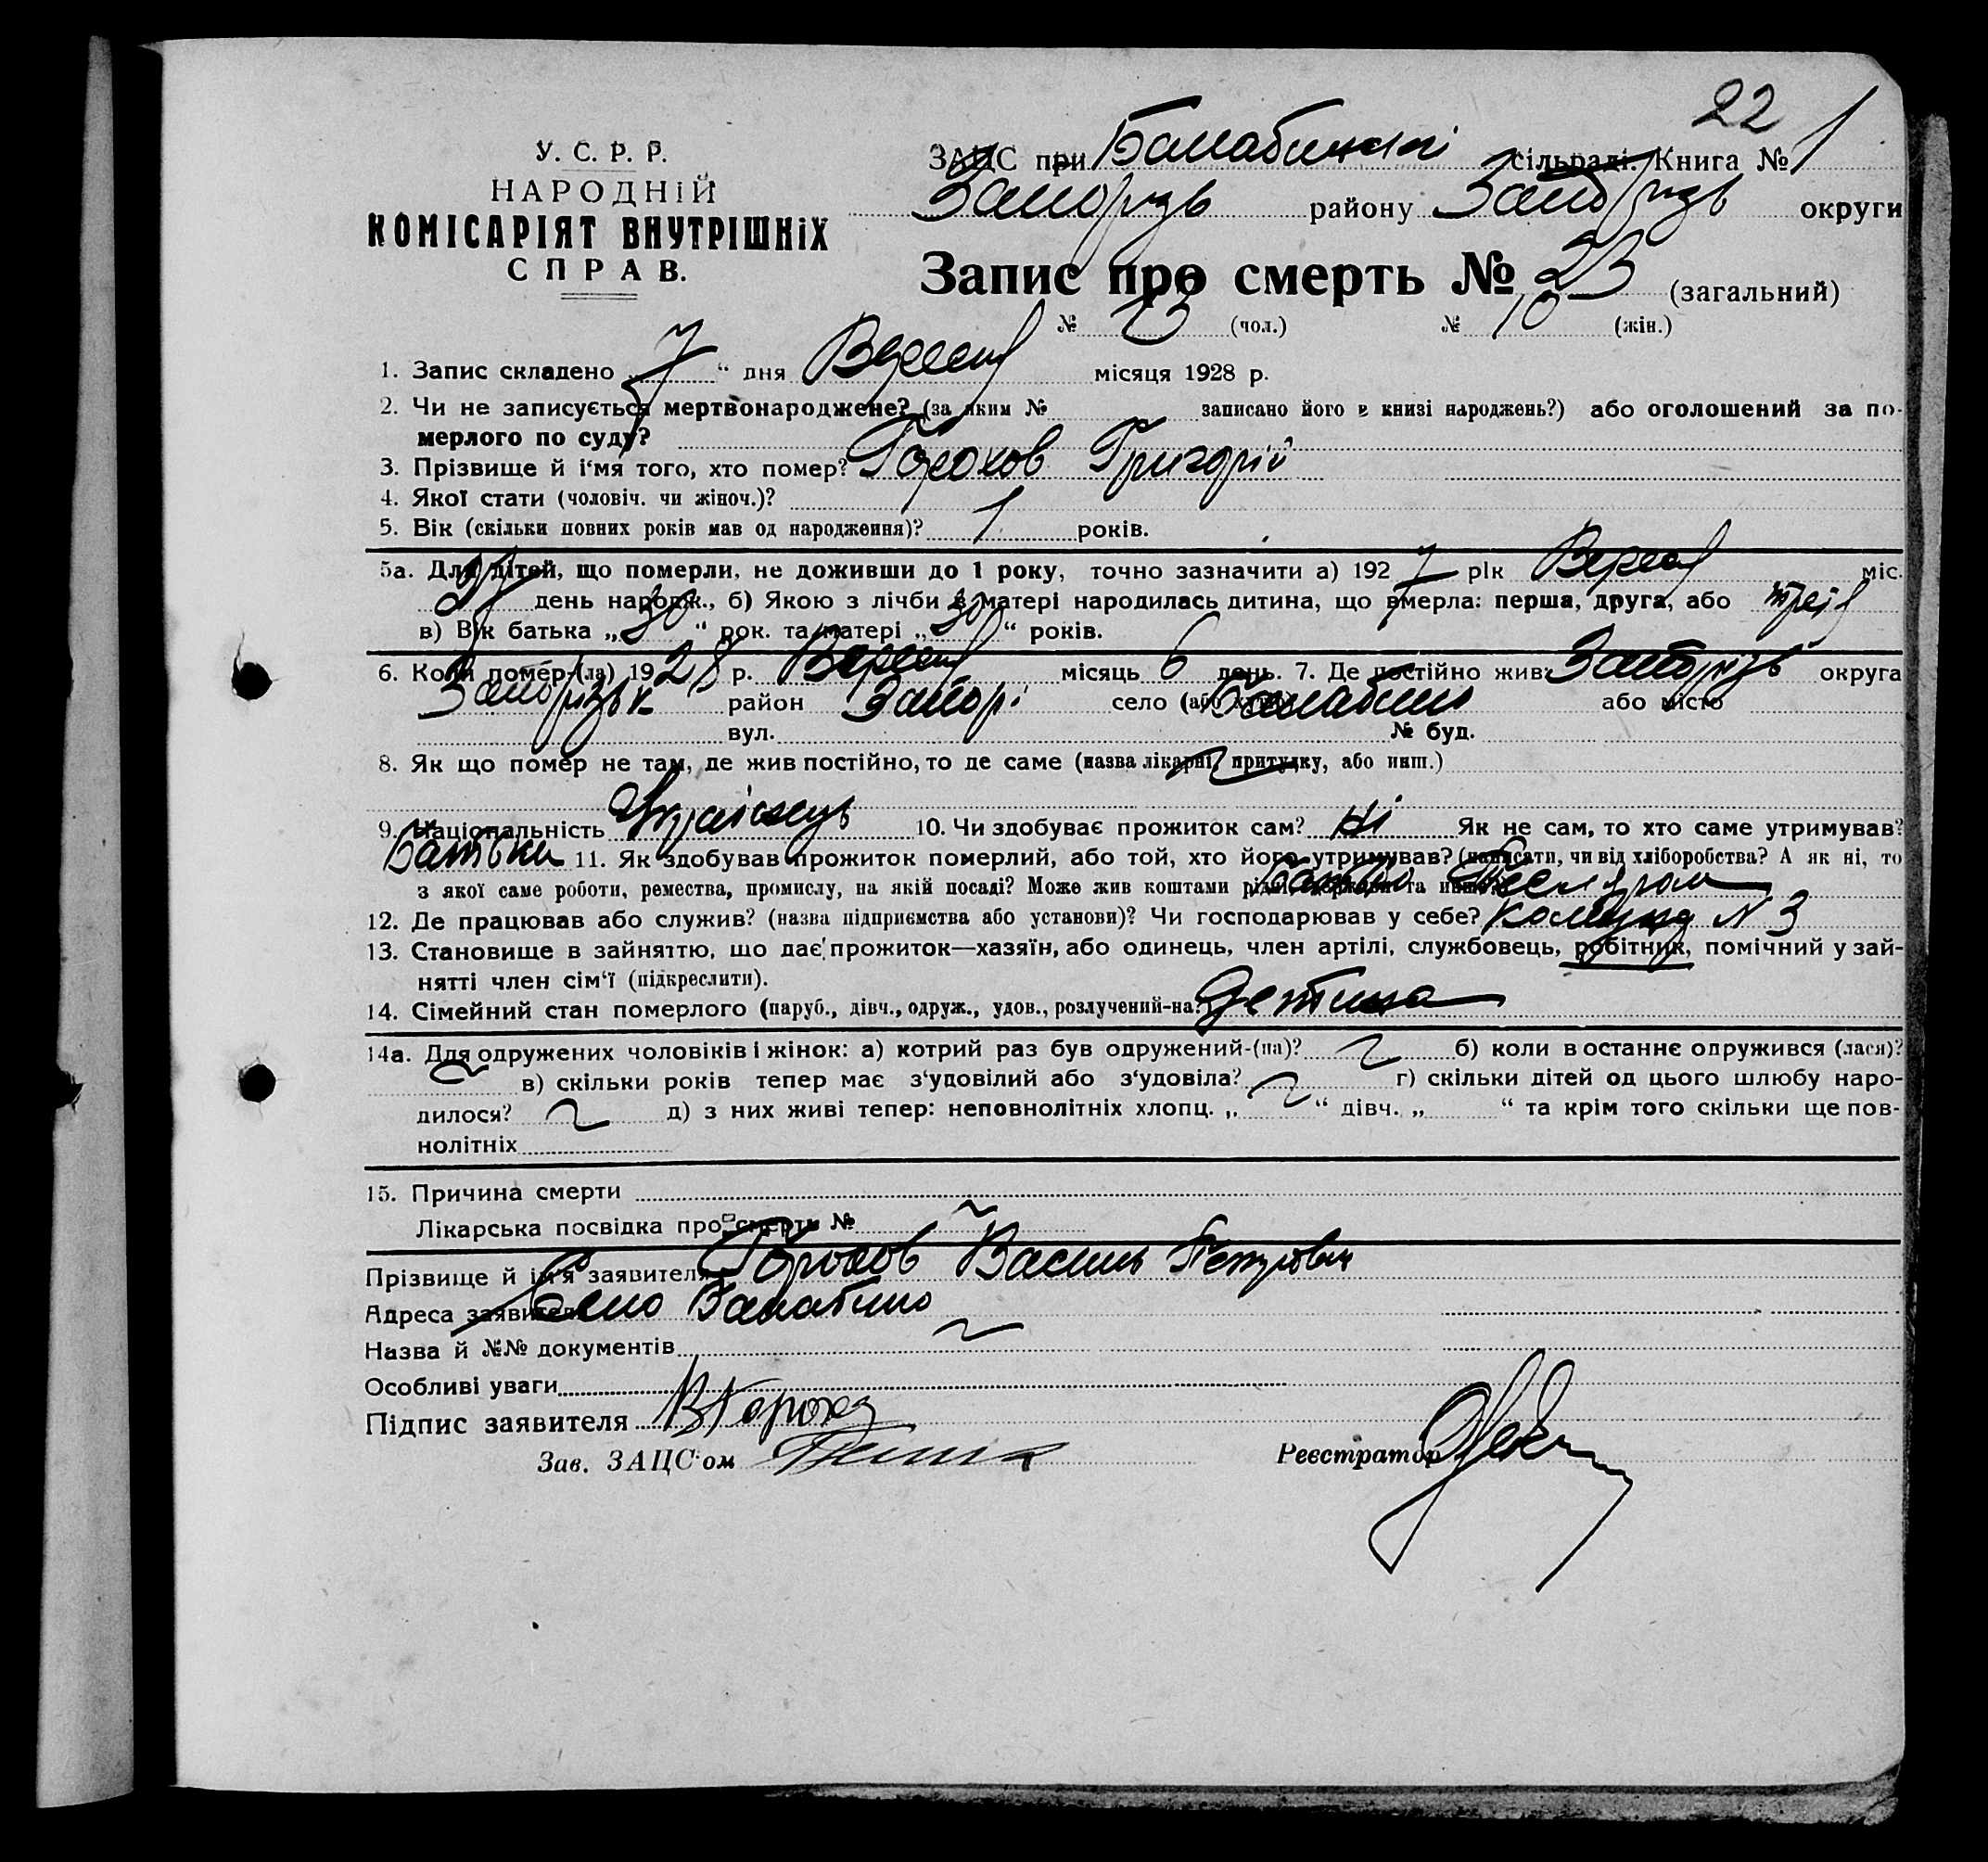 22
У. С. Р. Р.
НАРОДНІЙ
КОМІСАРІЯТ ВНУТРІШНіХ
СПРАВ.
ЗАЦС при Балабинскі сільраді. Книга № 1
Запорізь району Запорізь округи
Запис про смерть № 23 (загальний)
№ 13 (чол.) № 10 (жін.)
1. Запис складено „7“ дня Вересня місяця 1928 р.
2. Чи не записується мертвонароджене? (за яким № записано його в книзі народжень?) або оголошений за по-
мерлого по суду?
3. Прізвище й ім'я того, хто помер? Горохов Григорій
4. Якої стати (чоловіч. чи жіноч.)?
5. Вік (скільки повних років мав од народження)? 1 років.
5а. Для дітей, що померли, не доживши до 1 року, точно зазначити а) 1927 рік Вересня міс.
день народж., б) Якою з лічби в матері народилась дитина, що вмерла: перша, друга, або
в) Вік батька „30“ рок. та матері „30“ років.
6. Коли помер-(ла) 1928 р. Вересня місяць 6 день. 7. Де постійно жив: Запорізь округа
район село (або хутір) Балабино або місто
вул. № буд.
8. Як що помер не там, де жив постійно, то де саме (назва лікарні, притулку, або инш.)
9. Національність Українець 10. Чи здобуває прожиток сам? ні Як не сам, то хто саме утримував?
Батьки 11. Як здобував прожиток померлий, або той, хто його утримував? (написати, чи від хліборобства? А як ні, то
з якої саме роботи, ремества, промислу, на якій посаді? Може жив коштами рідні, держави та инше)
12. Де працював або служив? (назва підприємства або установи)? Чи господарював у себе? Комунар N 3
13. Становище в зайняттю, що дає прожиток—хазяїн, або одинець, член артілі, службовець, робітник, помічний у зай-
нятті член сім'ї (підкреслити).
14. Сімейний стан померлого (паруб., дівч., одруж., удов., розлучений-на?) Детина
14а. Для одружених чоловіків і жінок: а) котрий раз був одружений-(на)? б) коли в останнє одружився (лася)?
в) скільки років тепер має з'удовілий або з'удовіла? г) скільки дітей од цього шлюбу наро-
дилося? д) з них живі тепер: неповнолітніх хлопц. „ “ дівч. „ “ та крім того скільки ще пов-
нолітніх
15. Причина смерти
Лікарська посвідка про смерть №
Прізвище й ім'я заявителя Горохов Василь Петрович
Адреса заявителя Село Балабино
Назва й №№ документів
Особливі уваги
Підпис заявителя ВГорохов
Зав. ЗАЦС'ом
Реєстратор